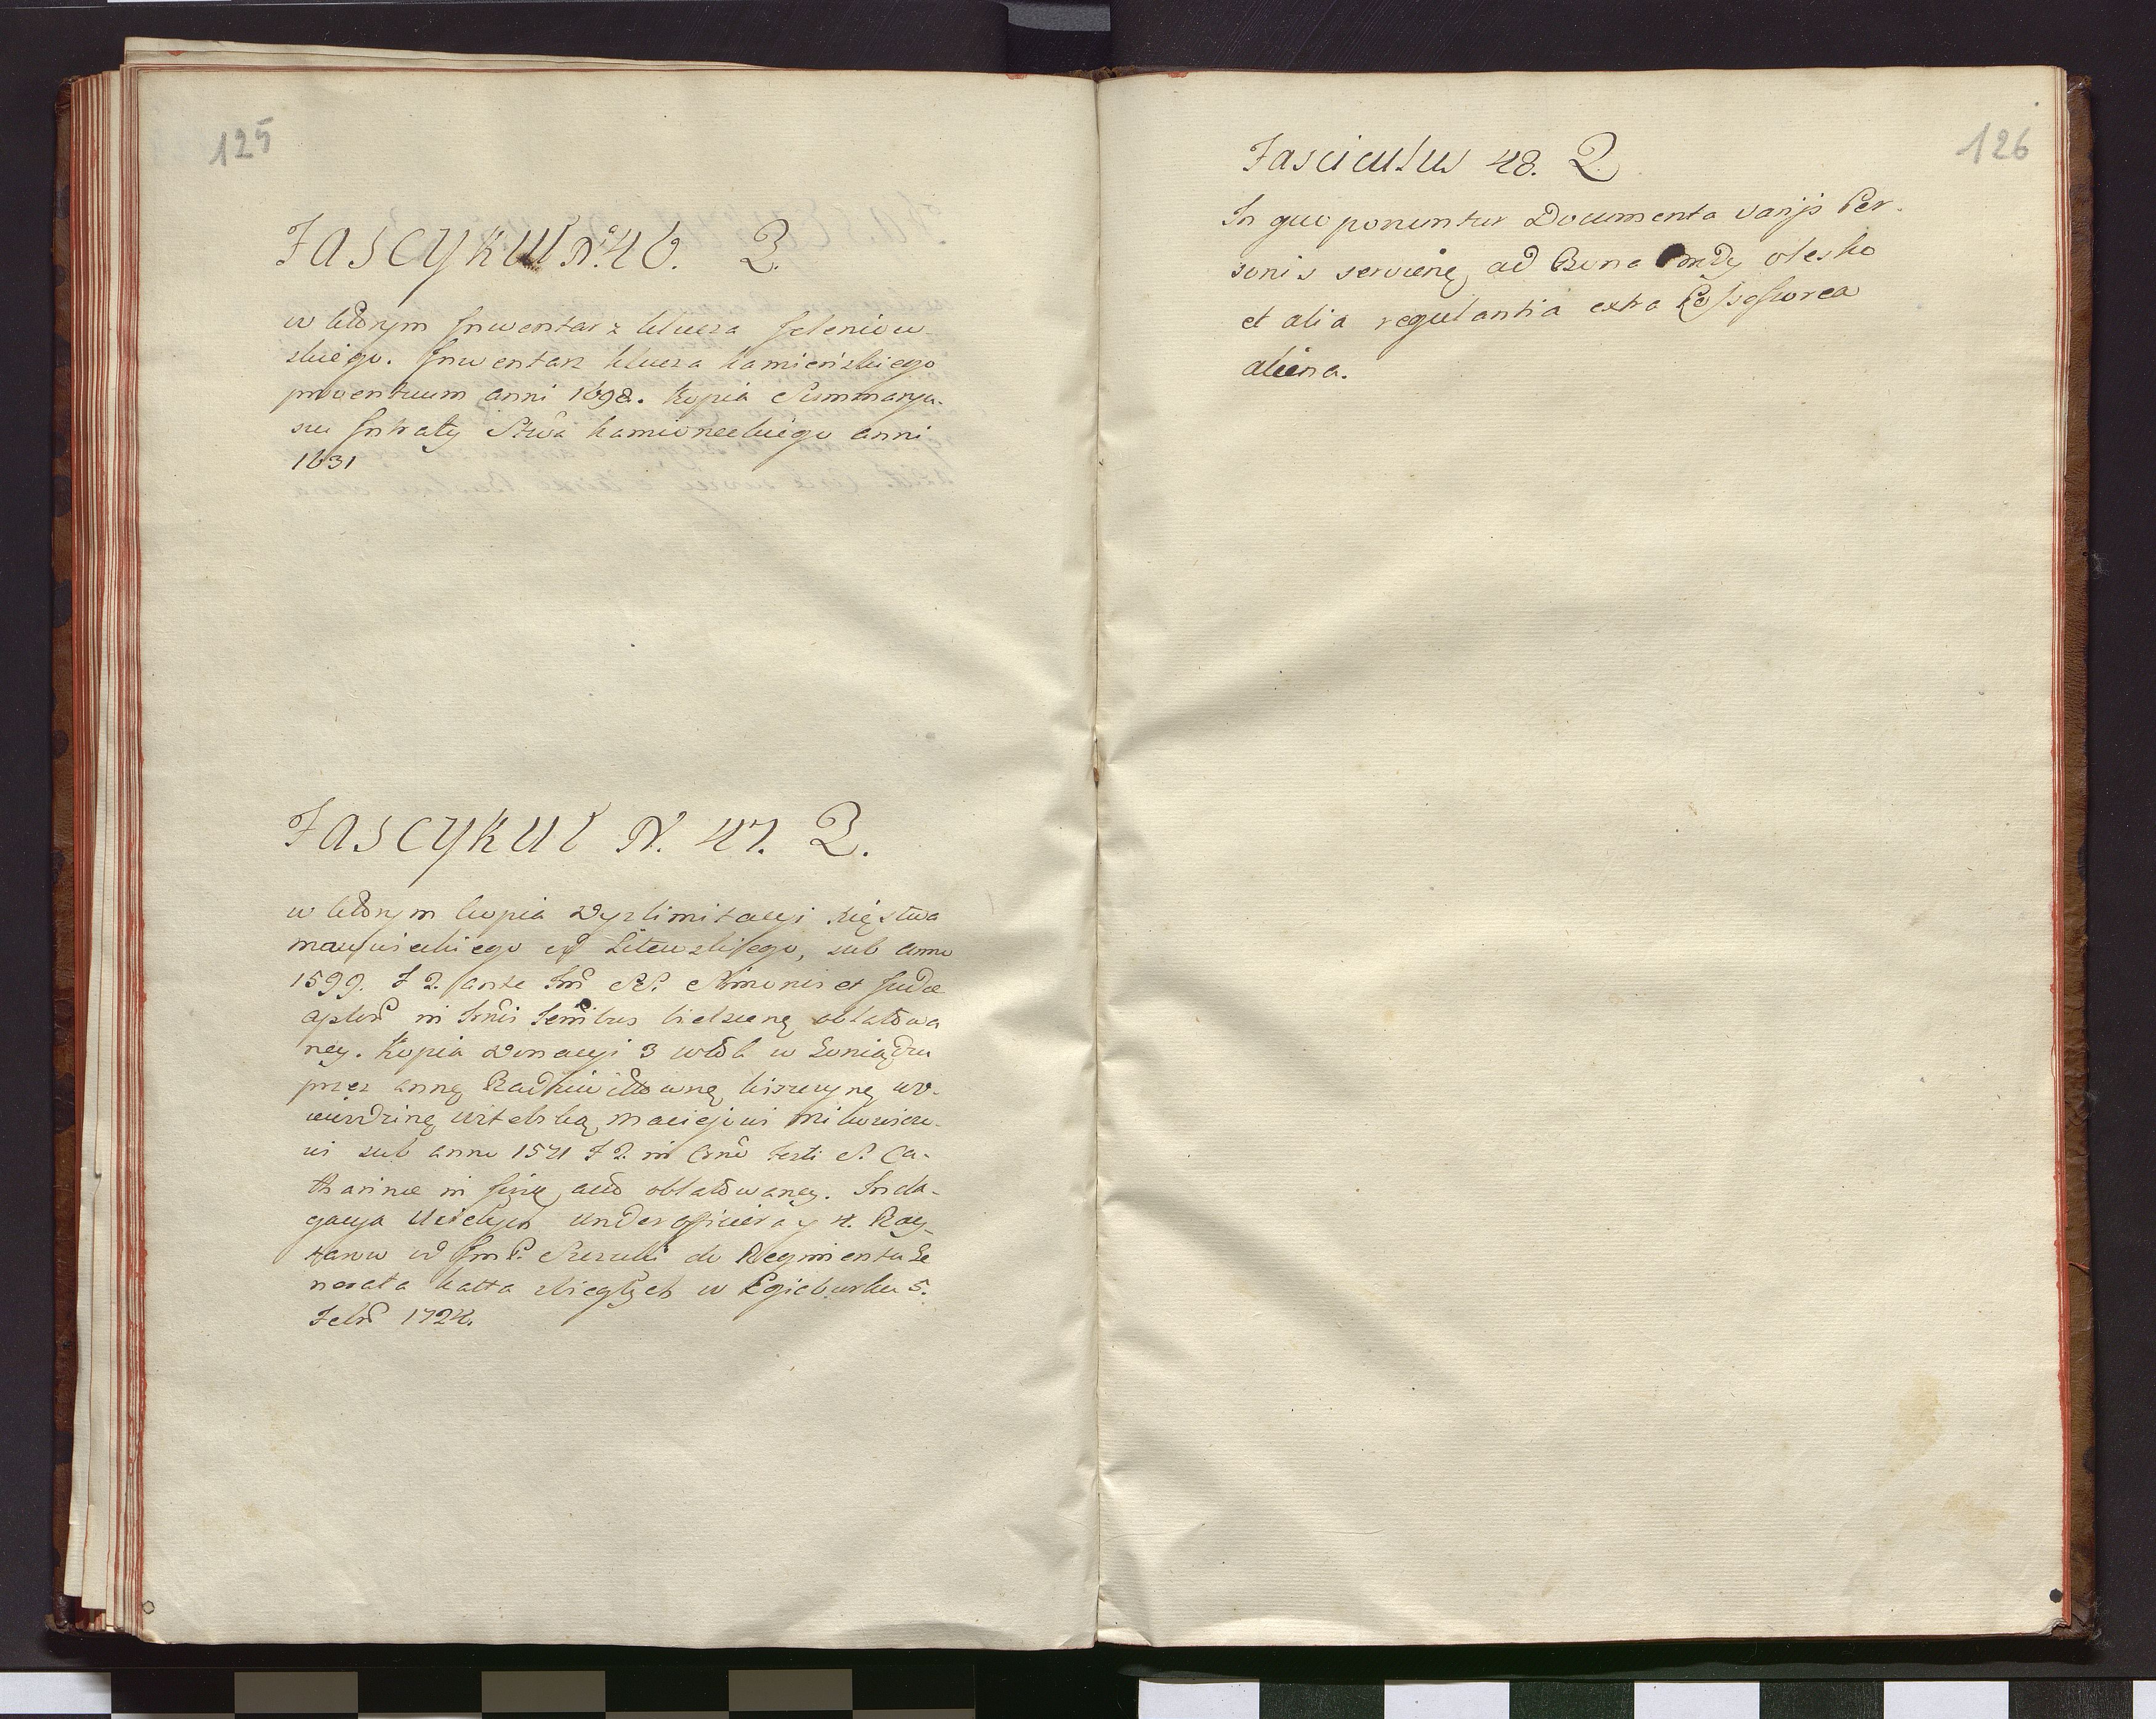 125
Fascykuł N° 46. 2.
w którym Jnwentarz klucza Jeleniow-
skiego. Jnwentarz klucza kamieńskiego
proventuum anni 1698. Kopia Summaryu-
szu Jntraty Stwa kamioneckiego anni
1631
Fascykuł N. 47. 2.
w którym kopia Dyzlimitacyi Xięstwa
mazowieckiego od Litewskiego, sub anno
1599. F 2. ante Fm̃ SS. Simonis et Judæ
aplor̃ in trñis terr̃ibus bielscen̨ oblatowa
ney. Kopia Donacyi 3 włok w Goniądzu
przez annę Radziwiłłowną kiszczynę wo-
iewodzinę witebską, maciejowi
wi sub anno 1571 F 2. in Crñõ festi S. Ca-
tharinæ in oblatowaney. Inda-
gacya underofficiera y 4. Ray-
tarow od Jm P. do Regimentu Ge
nerała katta zbiegłych w 5.
Febr̃ 1724.
126
Fasciculus 48. 2
In quo ponuntur Documenta varijs Per-
sonis servien̨ ad Bona olesko
et alia regulantia extra Possessorea
aliena.